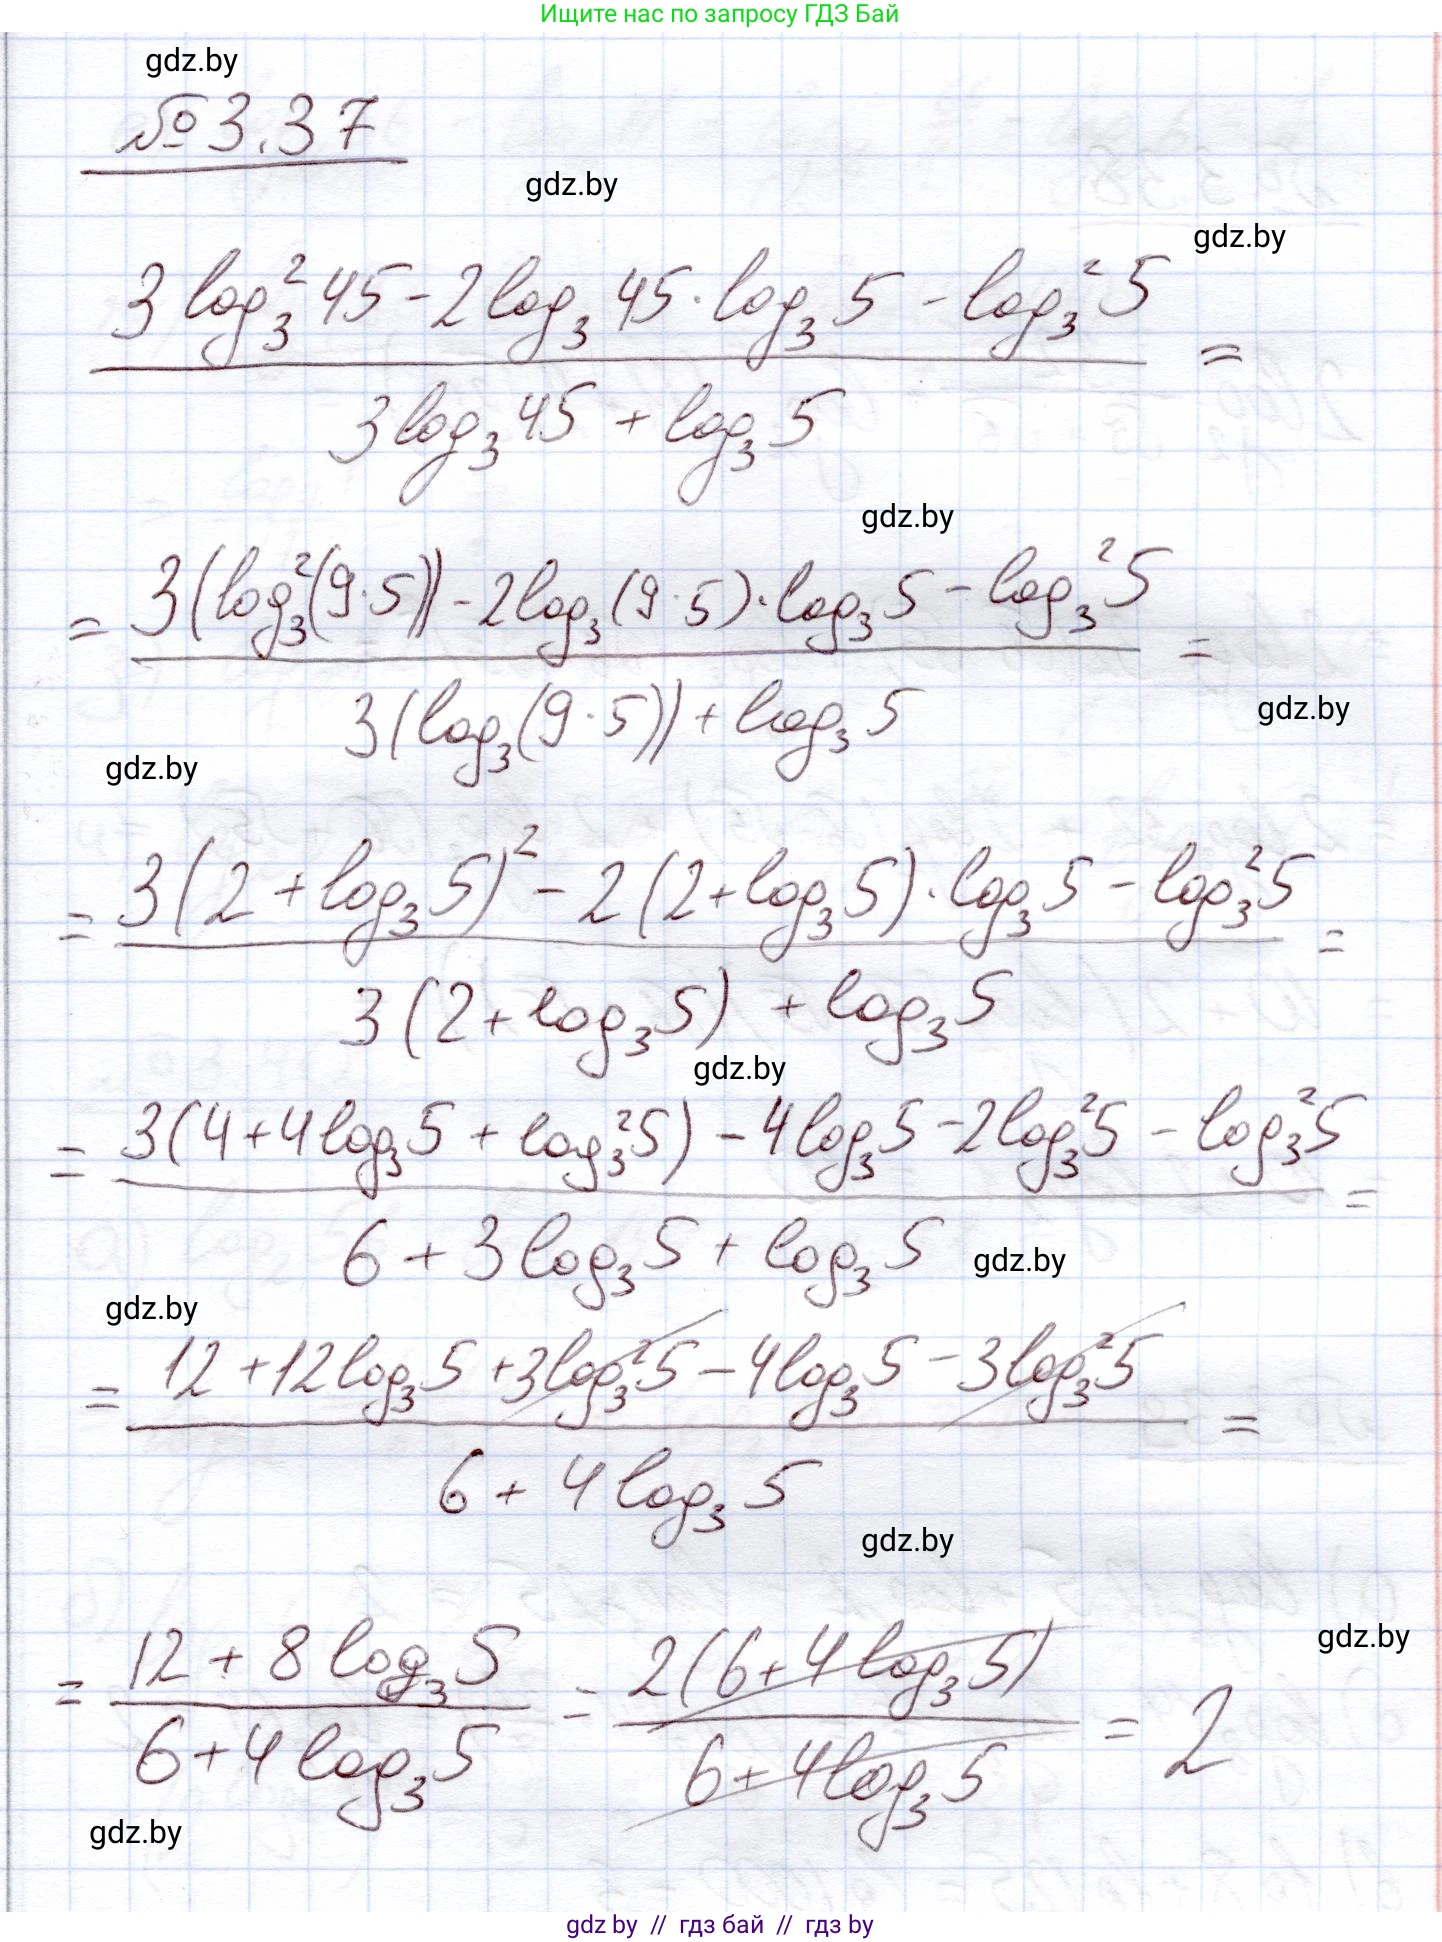 Ищите нас по запросу ГДЗ Бай
gdz.by
№ 3.37
gdz.by
gdz.by
3 log₃² 45 - 2 log₃ 45 · log₃ 5 - log₃² 5 =
3 log₃ 45 + log₃ 5
gdz.by
= 3(log₃²(9·5)) - 2 log₃(9·5) · log₃ 5 - log₃² 5 =
3(log₃(9·5)) + log₃ 5
gdz.by
gdz.by
= 3(2 + log₃ 5)² - 2(2 + log₃ 5) · log₃ 5 - log₃² 5 =
3(2 + log₃ 5) + log₃ 5
gdz.by
= 3(4 + 4 log₃ 5 + log₃² 5) - 4 log₃ 5 - 2 log₃² 5 - log₃² 5 =
6 + 3 log₃ 5 + log₃ 5
gdz.by
gdz.by
= 12 + 12 log₃ 5 + 3 log₃² 5 - 4 log₃ 5 - 3 log₃² 5 =
6 + 4 log₃ 5
gdz.by
gdz.by
= 12 + 8 log₃ 5 = 2(6 + 4 log₃ 5) = 2
6 + 4 log₃ 5 6 + 4 log₃ 5
gdz.by
gdz by // гдз бай // гдз by